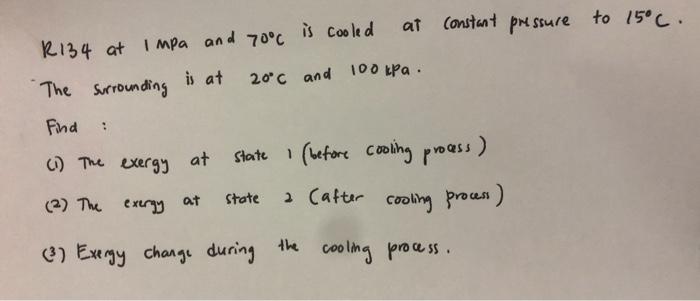 R134 at 1 mpa and 70°C is cooled at constant pressure to 15°C.
The surrounding is at 20°C and 100 kPa.
Find :
(1) The exergy at state 1 (before cooling process)
(2) The exergy at state 2 (after cooling process)
(3) Exergy change during the cooling process.